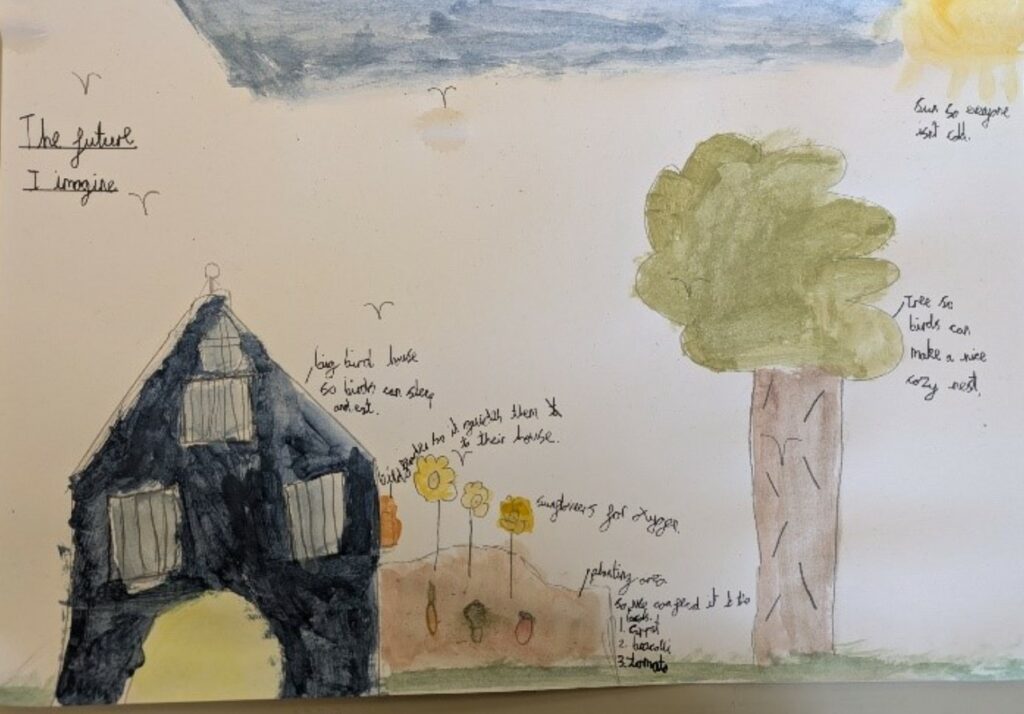 The future
I imagine
Sun so everyone
isnt cold.
Tree so
birds can
make a nice
cozy nest.
big bird house
so birds can sleep
and eat.
so it guides them
to their house.
sunflowers for oxygen
planting area
so we can feed it to
birds.
1. carrot
2. brocolli
3. tomato